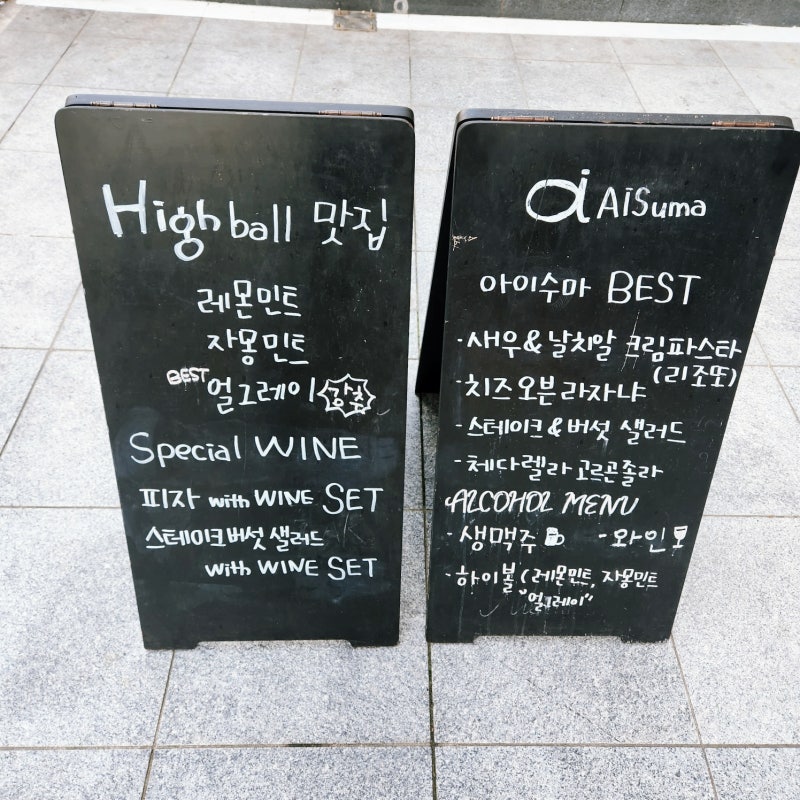 Highball 맛집
레몬민트
자몽민트
BEST 얼그레이 강추
Special WINE
피자 with WINE SET
스테이크버섯샐러드
with WINE SET
ai AISuma
아이수마 BEST
· 새우 & 날치알 크림파스타
(리조또)
· 치즈오븐라자냐
- 스테이크 & 버섯 샐러드
- 체다렐라 고르곤졸라
ALCOHOL MENU
· 생맥주 - 와인
· 하이볼 (레몬민트, 자몽민트
"얼그레이"